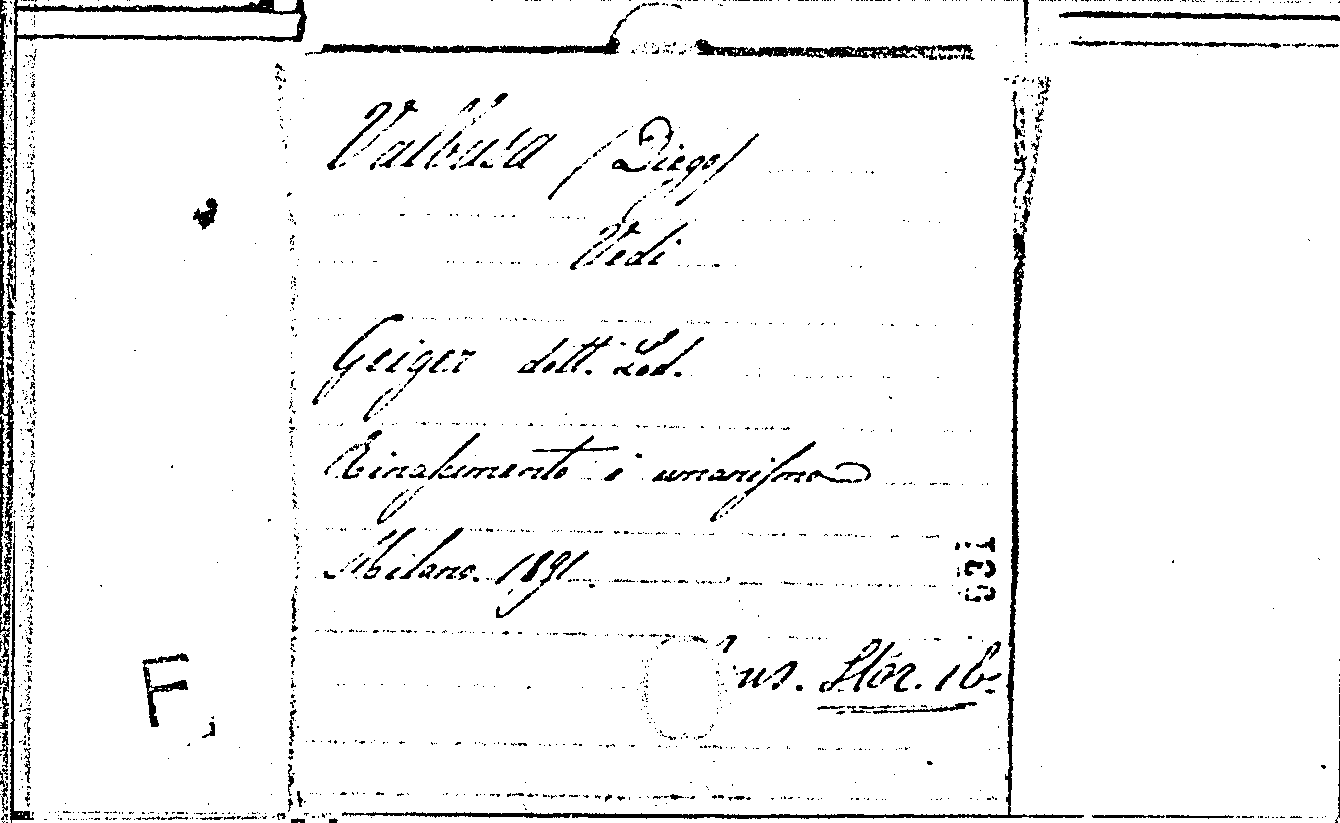 Valbusa (Diego)
Vedi
Geiger dott. Lod.
Rinascimento e umanismo
Milano. 1891.
031
us. Stor. 16.
F.